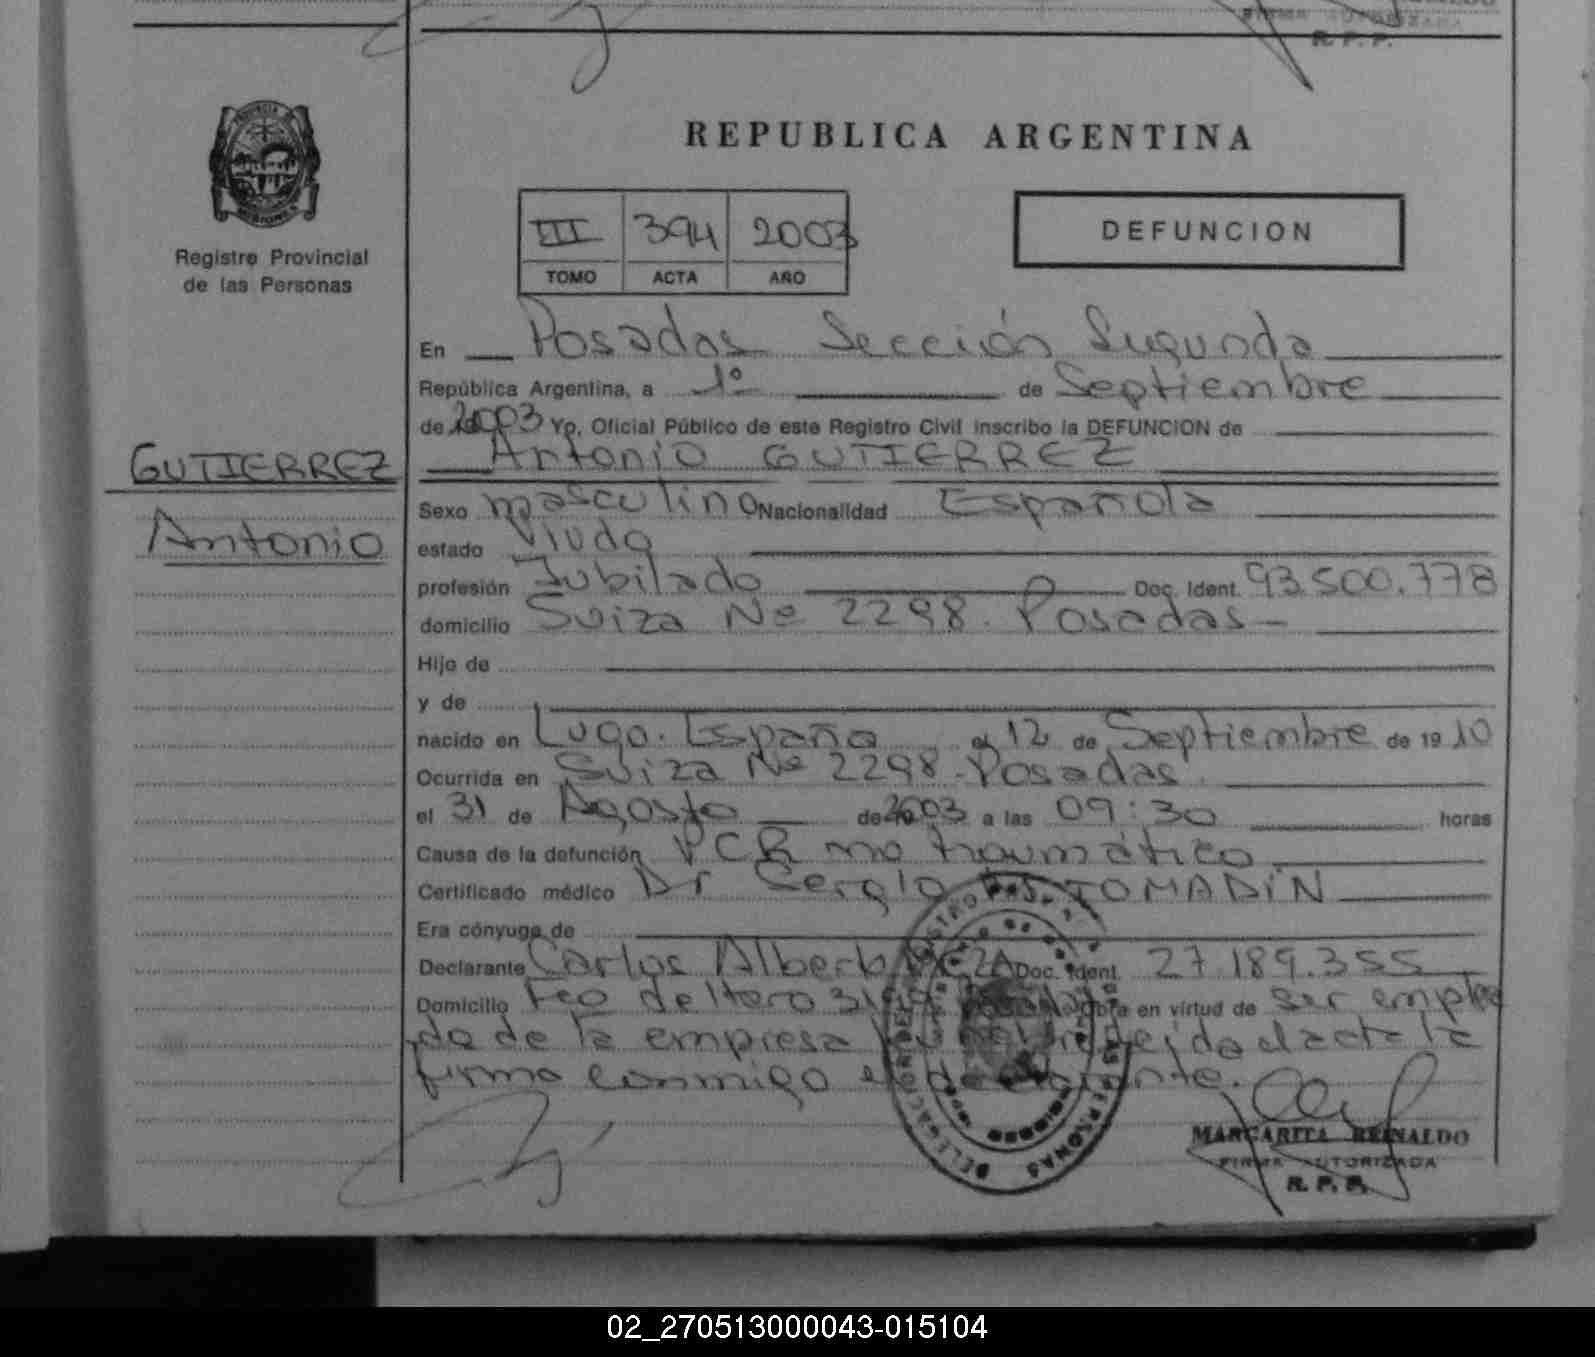 FIRMA AUTORIZADA
R. P. P.
PROVINCIA DE
MISIONES
Registro Provincial
de las Personas
REPUBLICA ARGENTINA
III 394 2003
TOMO ACTA AÑO
DEFUNCION
En Posadas Sección Segunda
República Argentina, a 1º de Septiembre
de 2003 Yo, Oficial Público de este Registro Civil inscribo la DEFUNCION de
GUTIERREZ
Antonio
Antonio GUTIERREZ
Sexo masculino Nacionalidad Española
estado Viudo
profesión Jubilado Doc. Ident. 93.500.778
domicilio Suiza Nº 2298. Posadas-
Hijo de
y de
nacido en Lugo. España el 12 de Septiembre de 1910
Ocurrida en Suiza Nº 2298-Posadas
el 31 de Agosto de 2003 a las 09:30 horas
Causa de la defunción PCR no traumático
Certificado médico Dr Sergio TOMADIN
Era cónyuge de
Declarante Carlos Alberto Doc. Ident. 27.189.355
Domicilio Obra en virtud de ser emplea
do de la empresa
firma conmigo el declarante.
MARGARITA REINALDO
FIRMA AUTORIZADA
R. P. P.
02_270513000043-015104